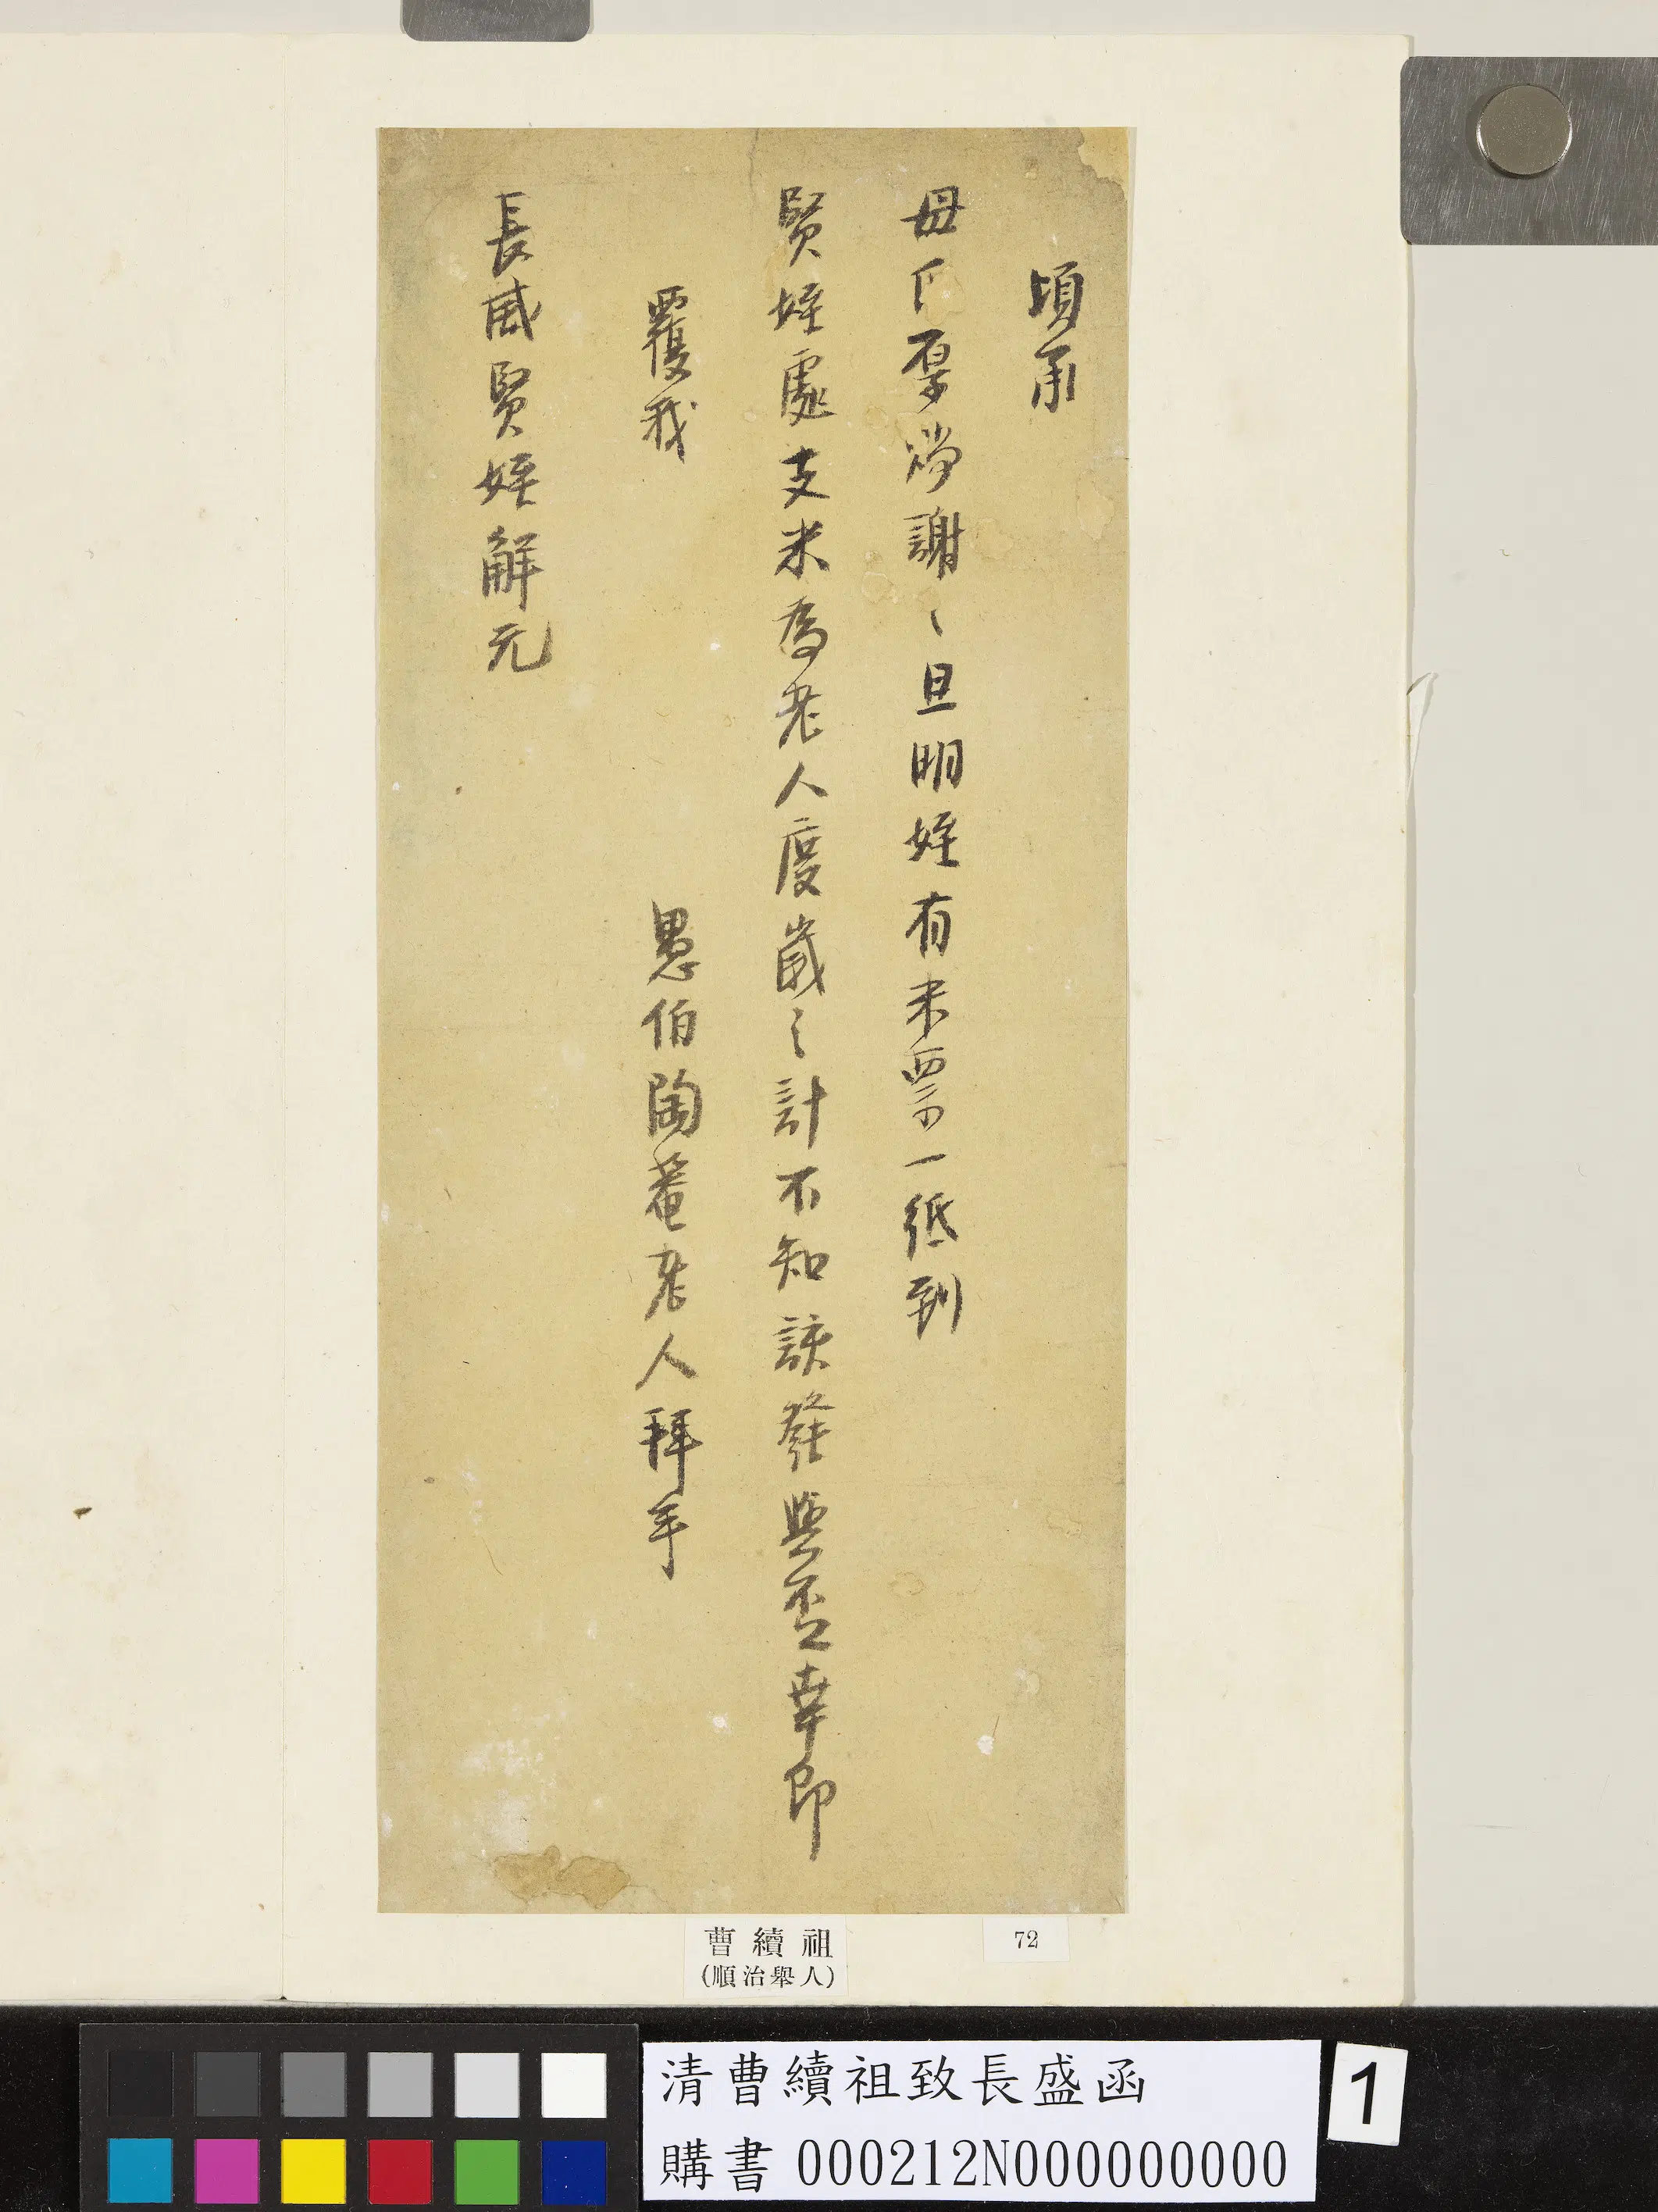 頃承
母厚謝〻旦明姪有米票一紙到
賢姪處支米為老人度歲之計不知該發與否幸即
覆我 愚伯陶菴老人拜手
長賢姪解元
曹續祖
(順治舉人)
72
清曹續祖致長盛函
購書 000212N000000000
1